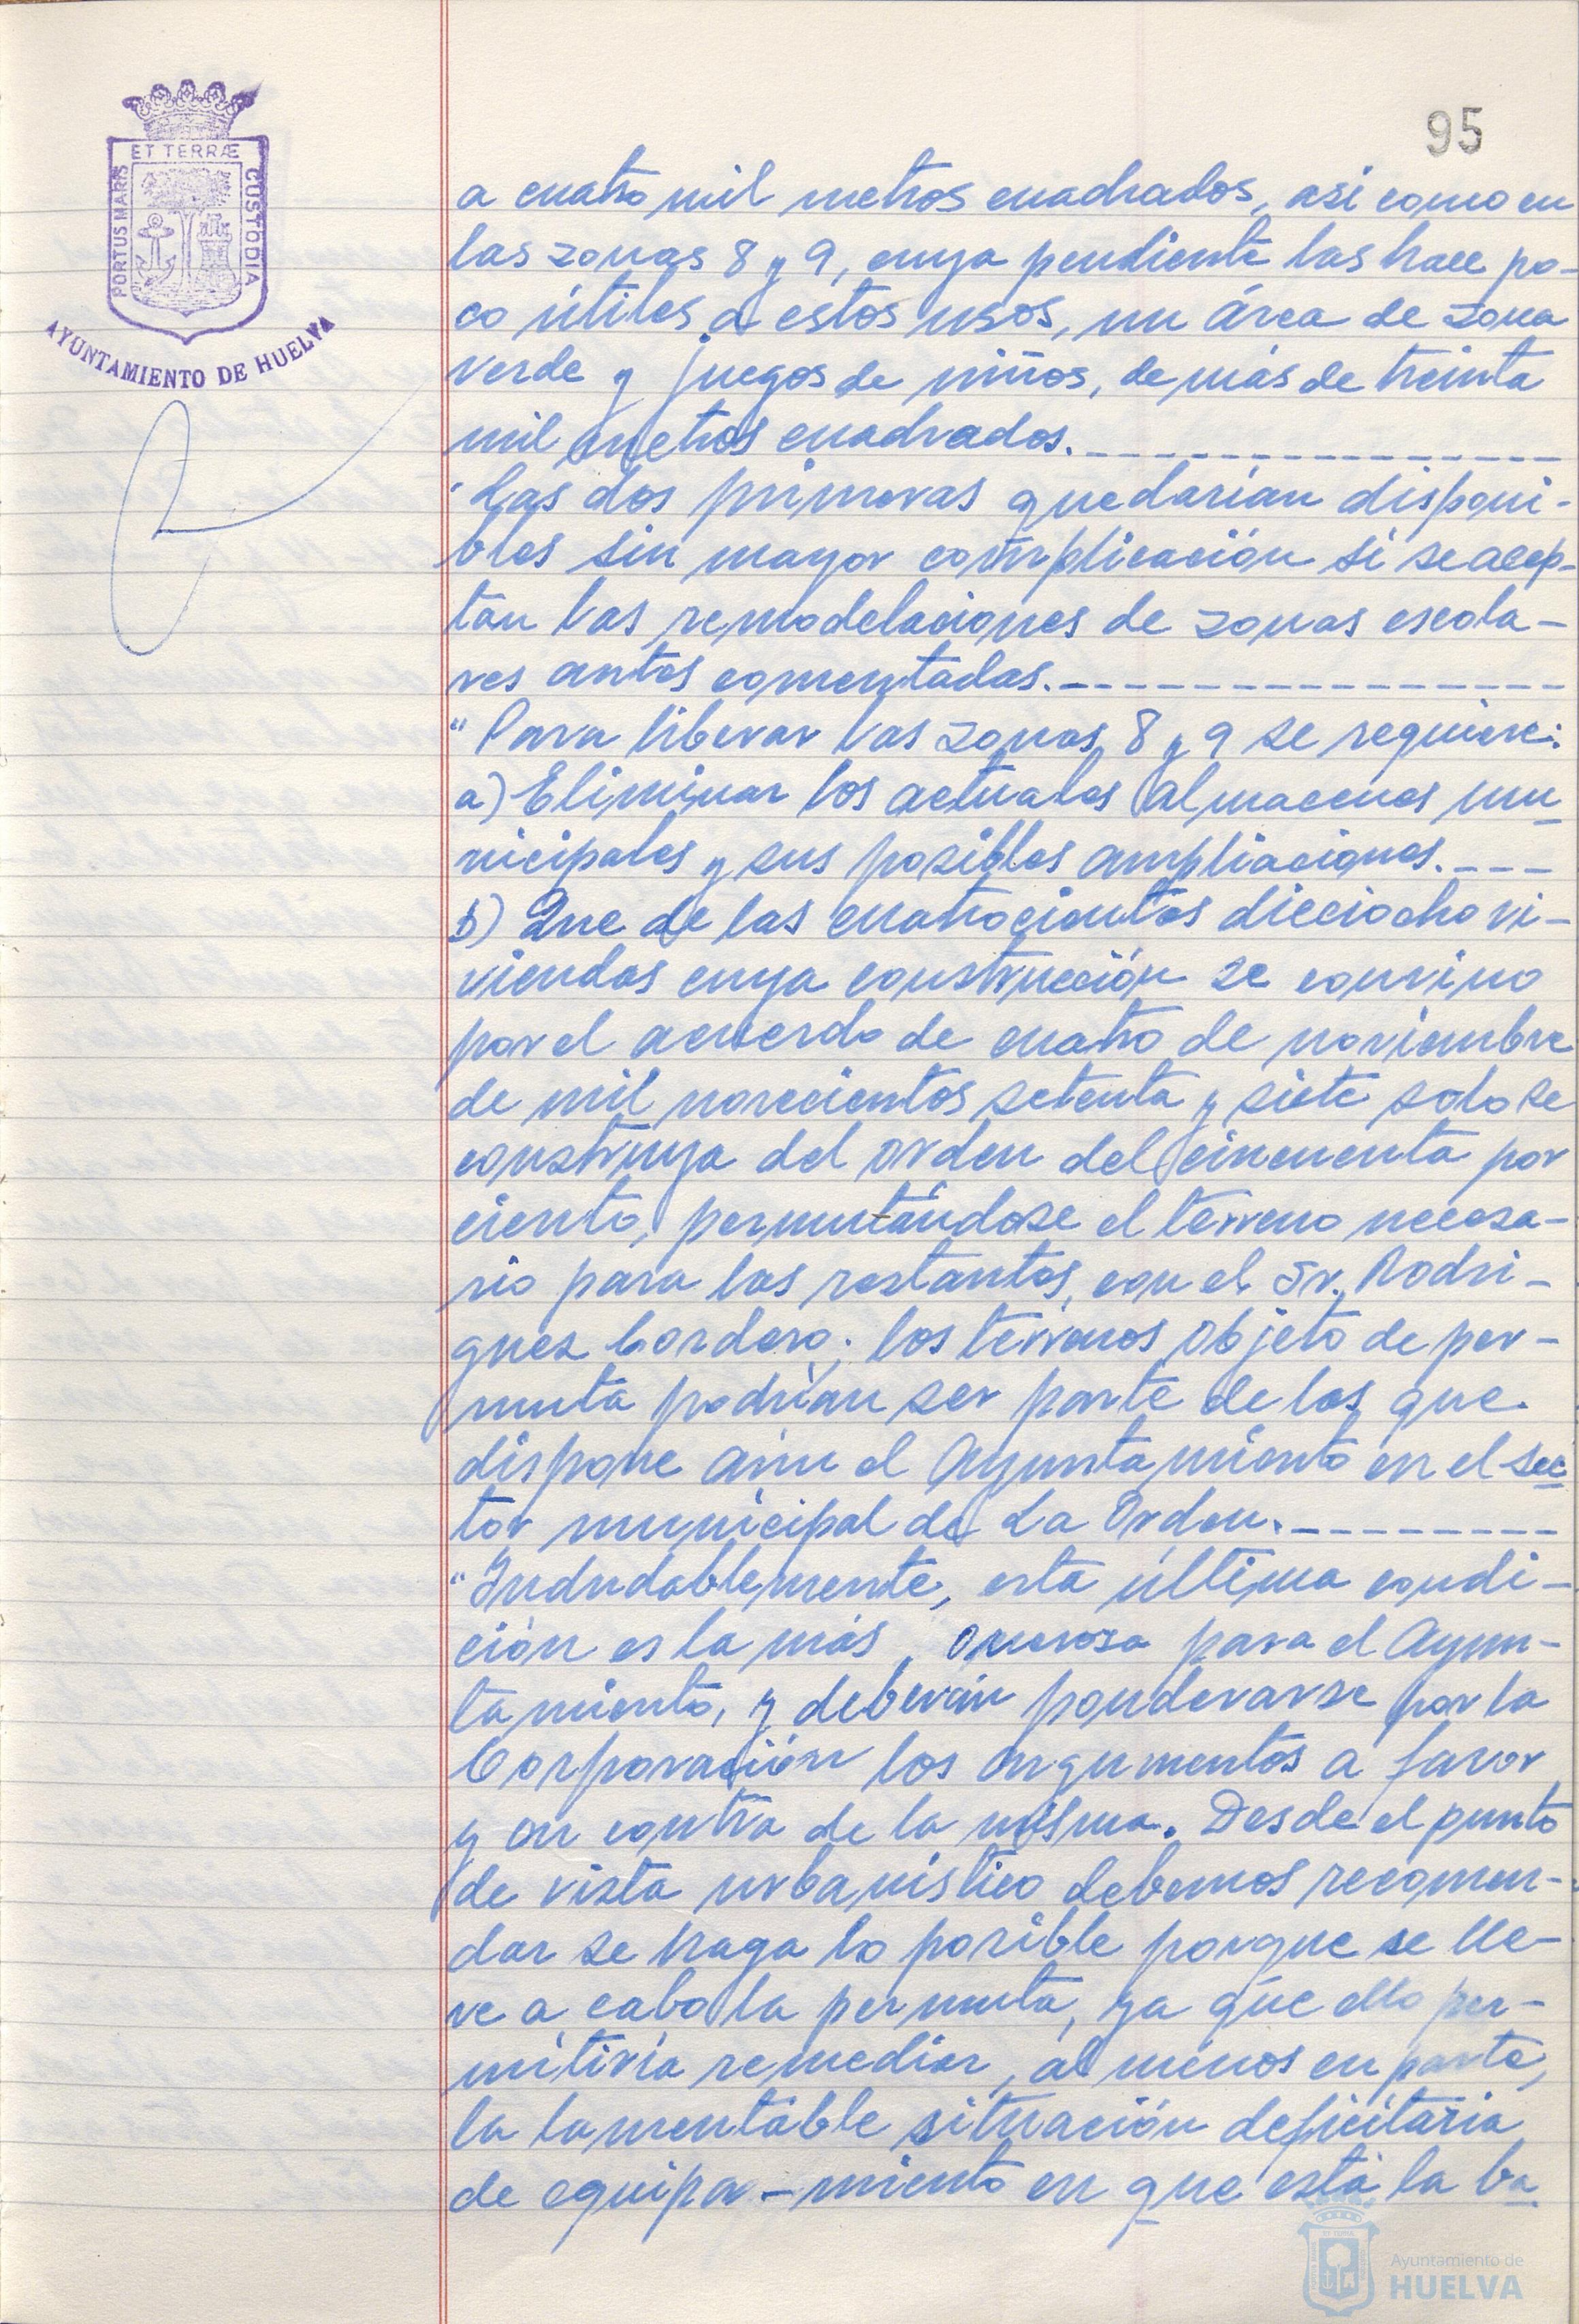 95
ET TERRÆ
PORTUS MARIS
CUSTODIA
AYUNTAMIENTO DE HUELVA
a cuatro mil metros cuadrados, asi como en
las zonas 8 y 9, cuya pendiente las hace po-
co útiles a estos usos, un área de zona
verde y juegos de niños, de más de treinta
mil metros cuadrados.
"Las dos primeras quedarían disponi-
bles sin mayor complicación si se acep-
tan las remodelaciones de zonas escola-
res antes comentadas.
"Para liberar las zonas 8 y 9 se requiere:
a) Eliminar los actuales almacenes mu-
nicipales y sus posibles ampliaciones.
b) Que de las cuatrocientas dieciocho vi-
viendas cuya construcción se convino
por el acuerdo de cuatro de noviembre
de mil novecientos setenta y siete solo se
construya del orden del cincuenta por
ciento, permutándose el terreno necesa-
rio para las restantes, con el Sr. Rodri-
guez Cordero; los terrenos objeto de per-
muta podrían ser parte de los que
dispone aún el Ayuntamiento en el sec-
tor municipal de La Orden.
"Indudablemente, esta última condi-
ción es la más onerosa para el Ayun-
tamiento, y deberán ponderarse por la
Corporación los argumentos a favor
y en contra de la misma. Desde el punto
de vista urbanístico debemos recomen-
dar se haga lo posible porque se lle-
ve a cabo la permuta, ya que ello per-
mitiría remediar, al menos en parte,
la lamentable situación deficitaria
de equipa-miento en que está la ba-
Ayuntamiento de
HUELVA